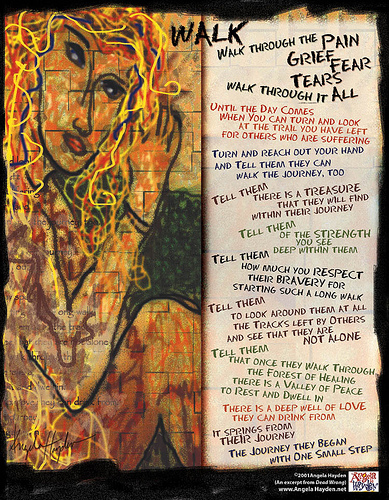 WALK
WALK THROUGH THE PAIN
GRIEF
FEAR
TEARS
WALK THROUGH IT ALL
UNTIL THE DAY COMES
WHEN YOU CAN TURN AND LOOK
AT THE TRAIL YOU HAVE LEFT
FOR OTHERS WHO ARE SUFFERING
TURN AND REACH OUT YOUR HAND
AND TELL THEM THEY CAN
WALK THE JOURNEY, TOO
TELL THEM
THERE IS A TREASURE
THAT THEY WILL FIND
WITHIN THEIR JOURNEY
TELL THEM
OF THE STRENGTH
YOU SEE
DEEP WITHIN THEM
TELL THEM
HOW MUCH YOU RESPECT
THEIR BRAVERY FOR
STARTING SUCH A LONG WALK
TELL THEM
TO LOOK AROUND THEM AT ALL
THE TRACKS LEFT BY OTHERS
AND SEE THAT THEY ARE
NOT ALONE
TELL THEM
THAT ONCE THEY WALK THROUGH
THE FOREST OF HEALING
THERE IS A VALLEY OF PEACE
TO REST AND DWELL IN
THERE IS A DEEP WELL OF LOVE
THEY CAN DRINK FROM
IT SPRINGS FROM
THEIR JOURNEY
THE JOURNEY THEY BEGAN
WITH ONE SMALL STEP
Angela Hayden
©2001Angela Hayden
(An excerpt from Dead Wrong)
www.Angela Hayden.net